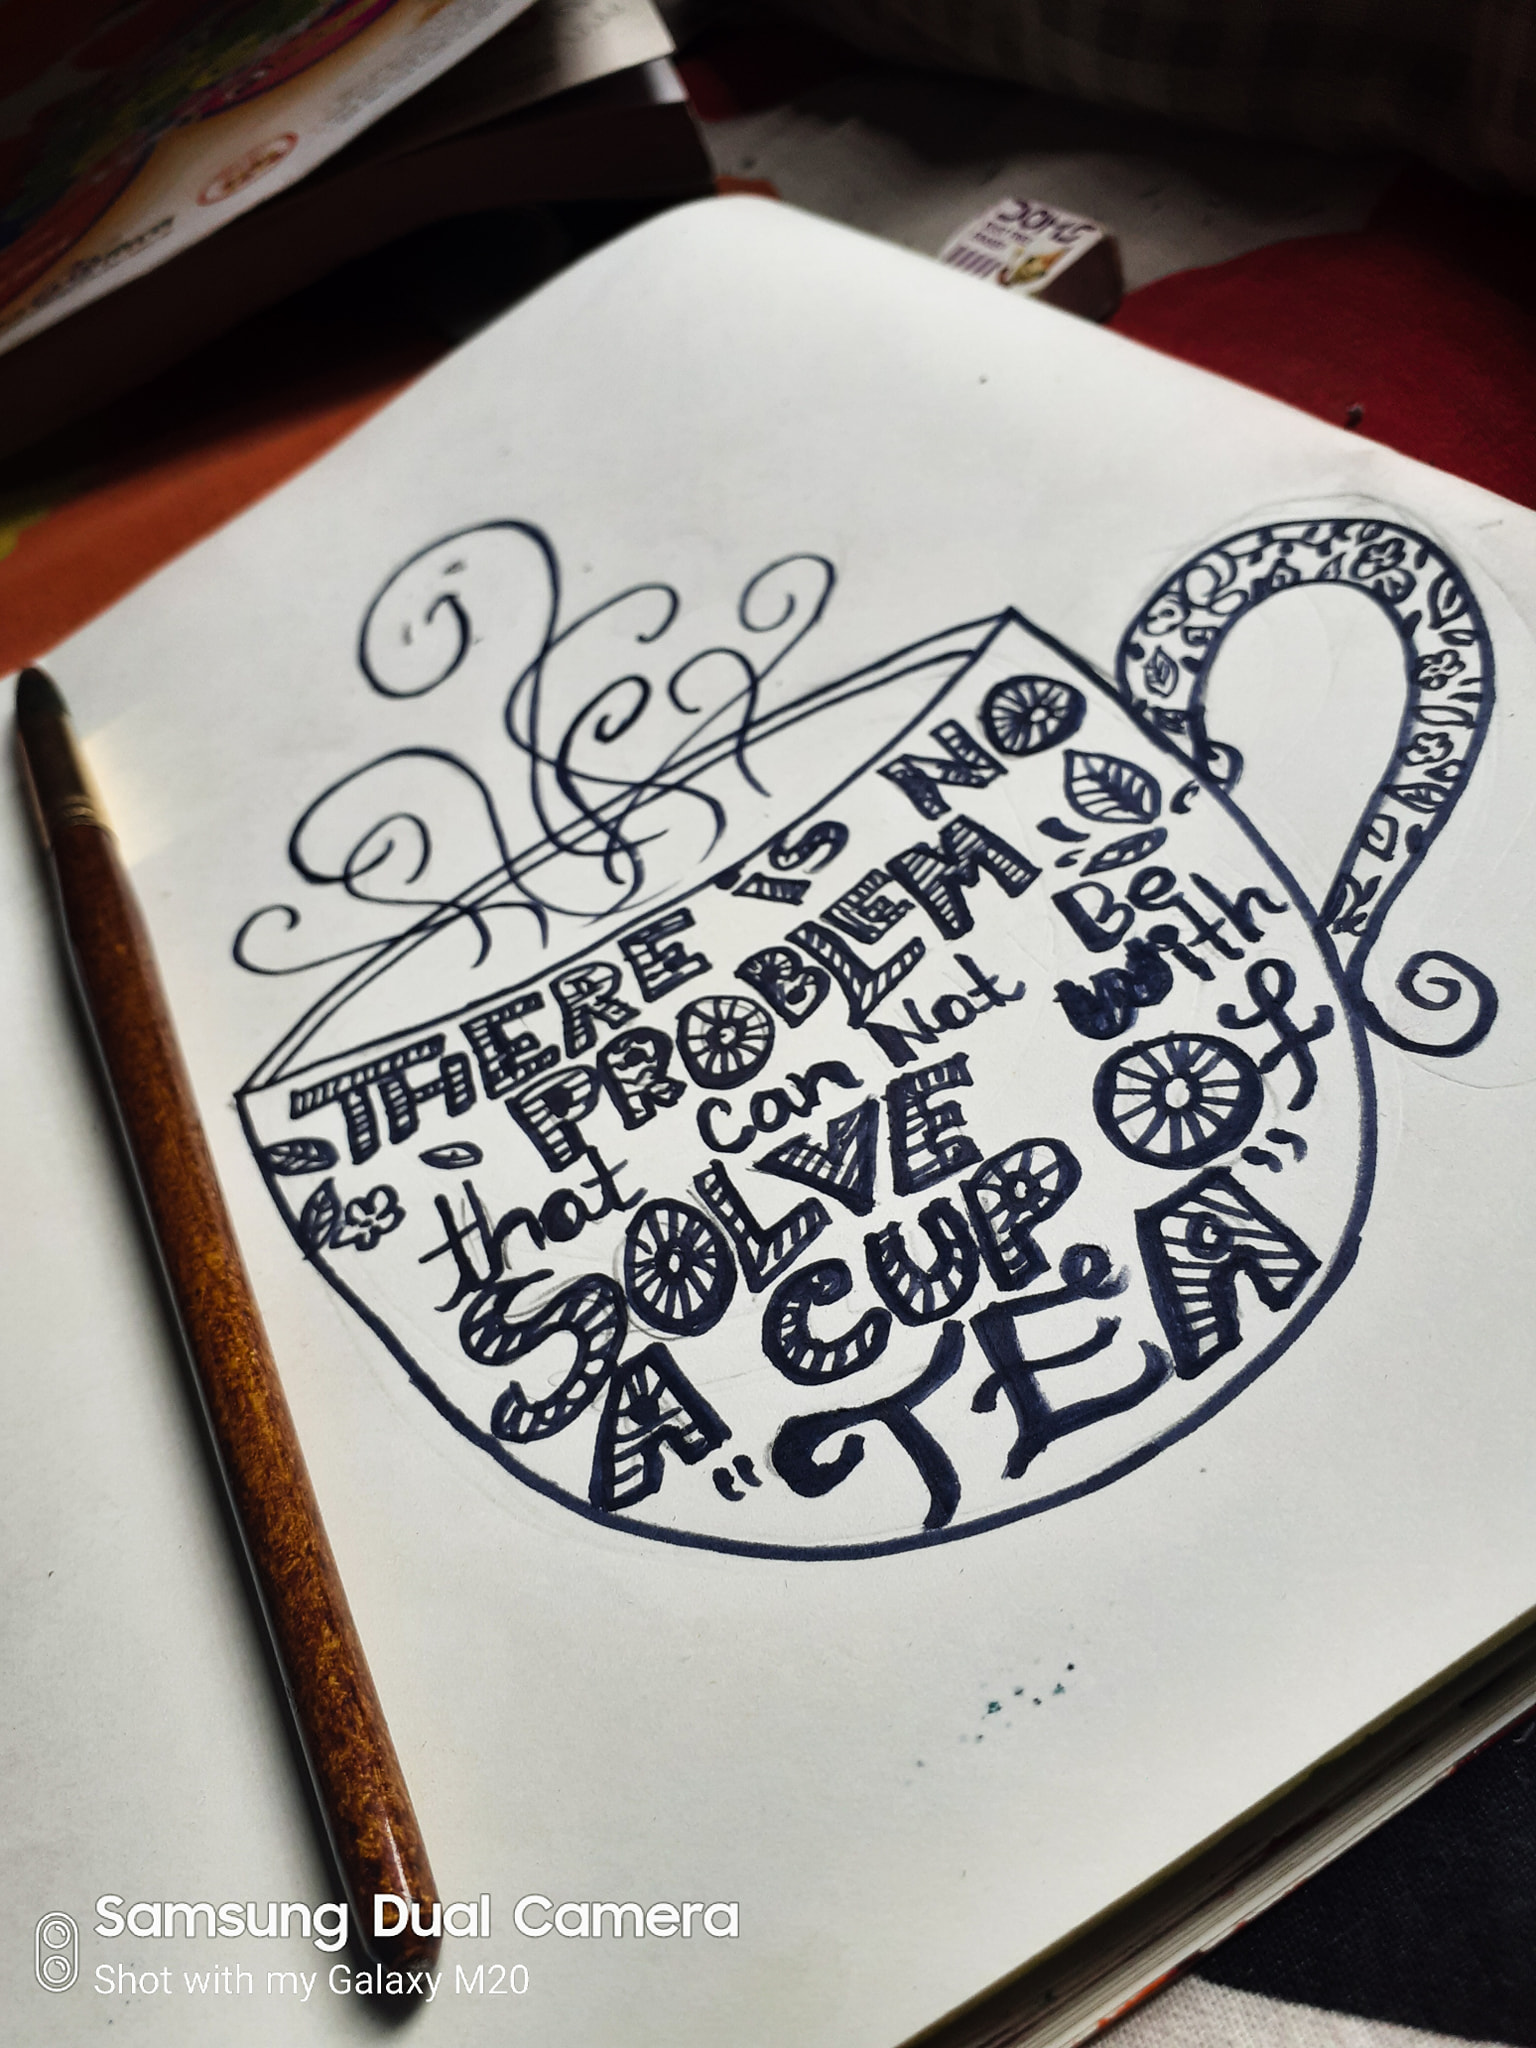 THERE IS NO
PROBLEM
that Can Not Be
SOLVE with
A CUP Of
"TEA"
DOMS
Samsung Dual Camera
Shot with my Galaxy M20